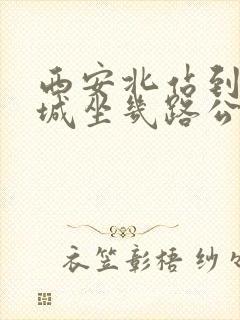 西安北站到
城坐几路公
衣笠彰梧 纱